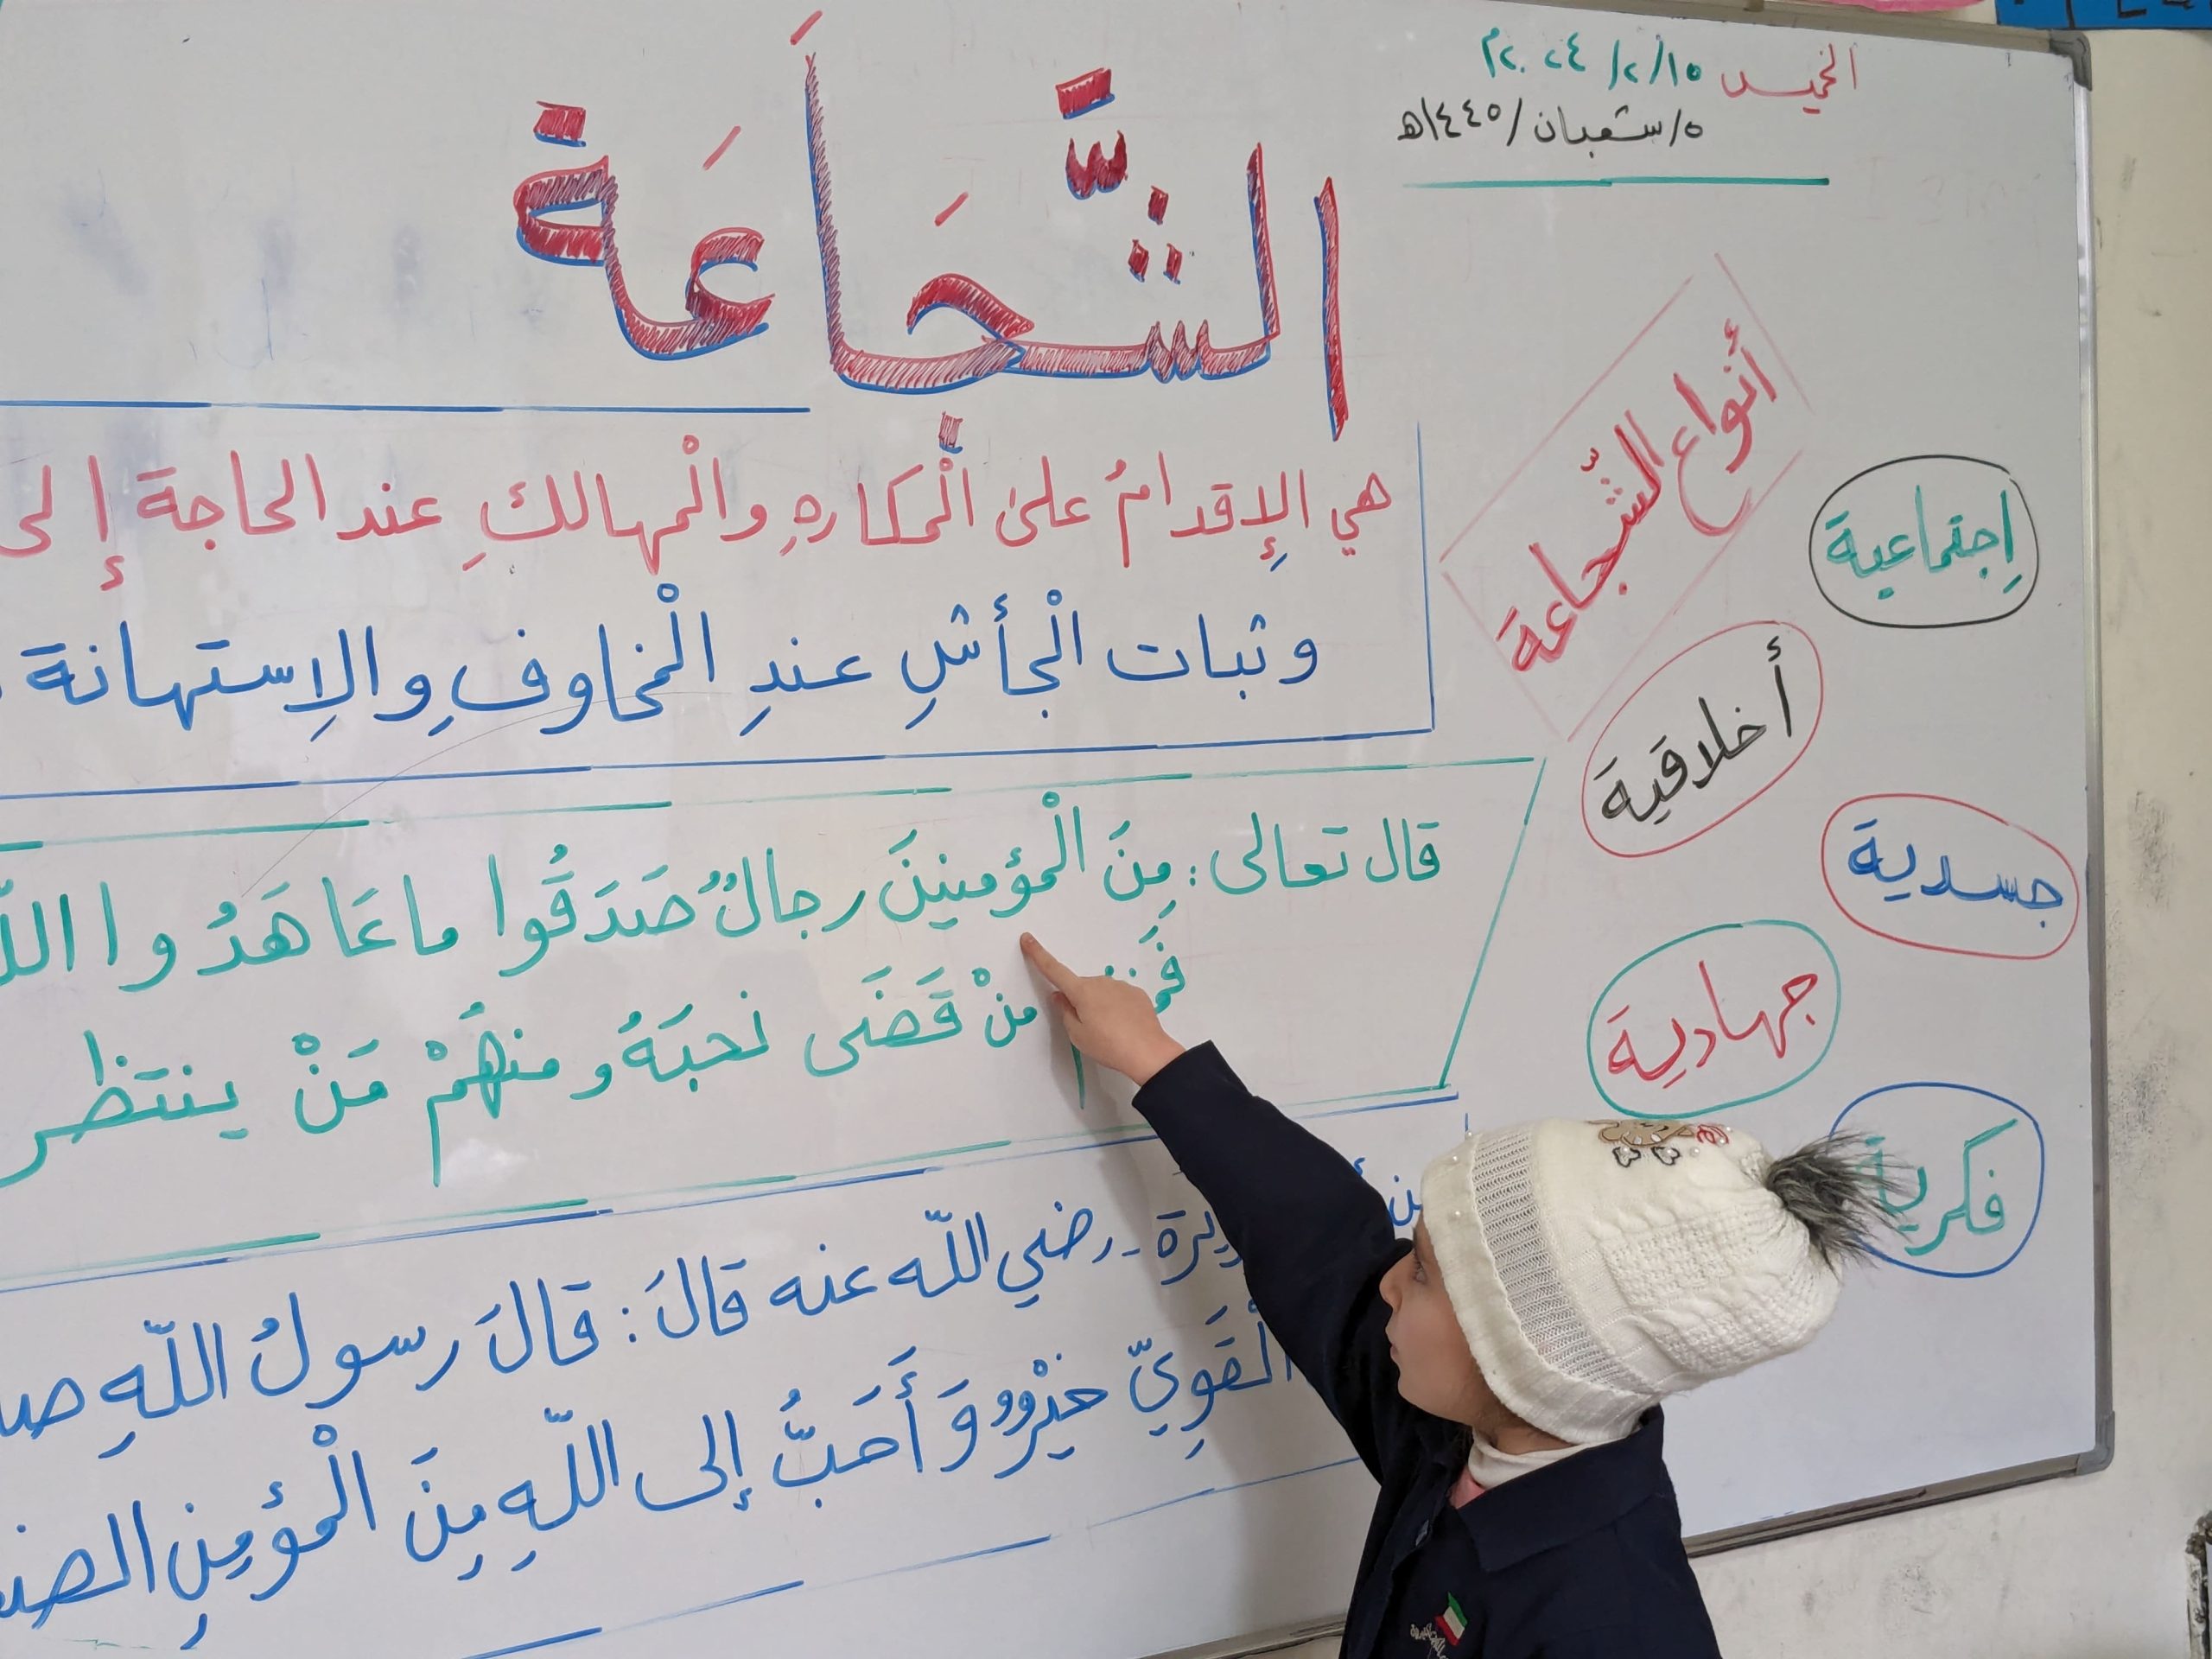 الخميس ١٥/٢/٢٠٢٤م
٥/شعبان/١٤٤٥ه
الشَّجَاَعَة
هي الإِقدامُ على الْمكارهِ والْمهالكِ عند الحاجة إلى
وثبات الْجأشِ عندِ الْمخاوفِ والاِستهانة
قال تعالى: مِنَ الْمؤمنينَ رجالٌ صَدَقُوا ما عَاهَدُوا
مَنْ قَضَى نحبَهُ ومنهُمْ مَنْ ينتظر
رضي اللّه عنه قالَ: قالَ رسولُ اللّهِ
الْقَوِيّ خيْرٌ وَأَحَبُّ إلى اللّهِ مِنَ الْمؤمِنِ
أنواع الشّجاعة
اِجتماعية
أخلاقية
جسدية
جهادية